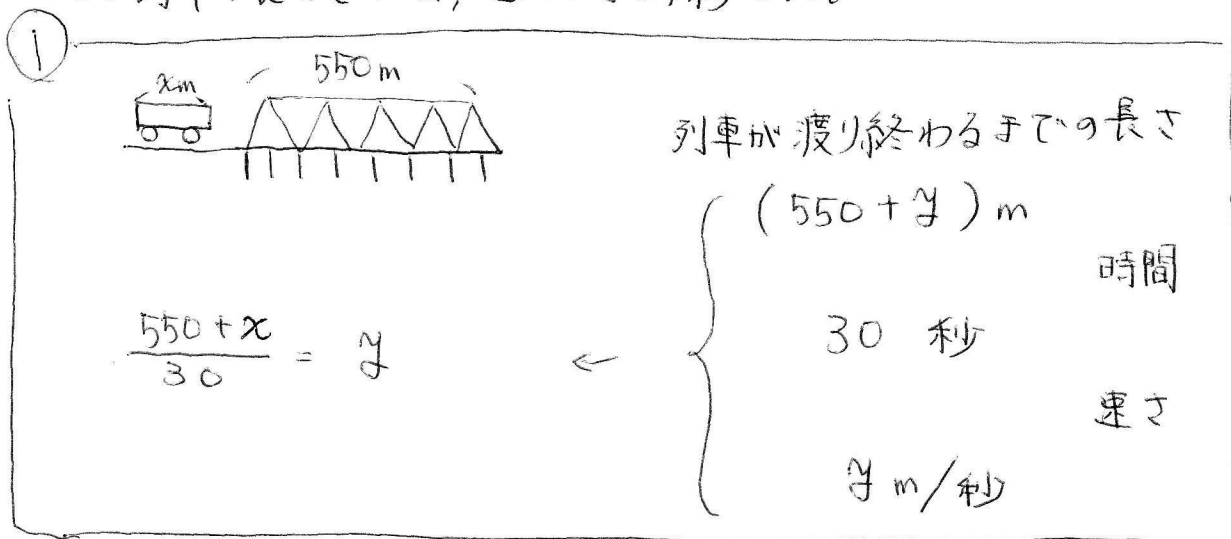 ①
xm
550m
列車が渡り終わるまでの長さ
(550+y)m
時間
30 秒
速さ
y m/秒
550+x
30
= y
←